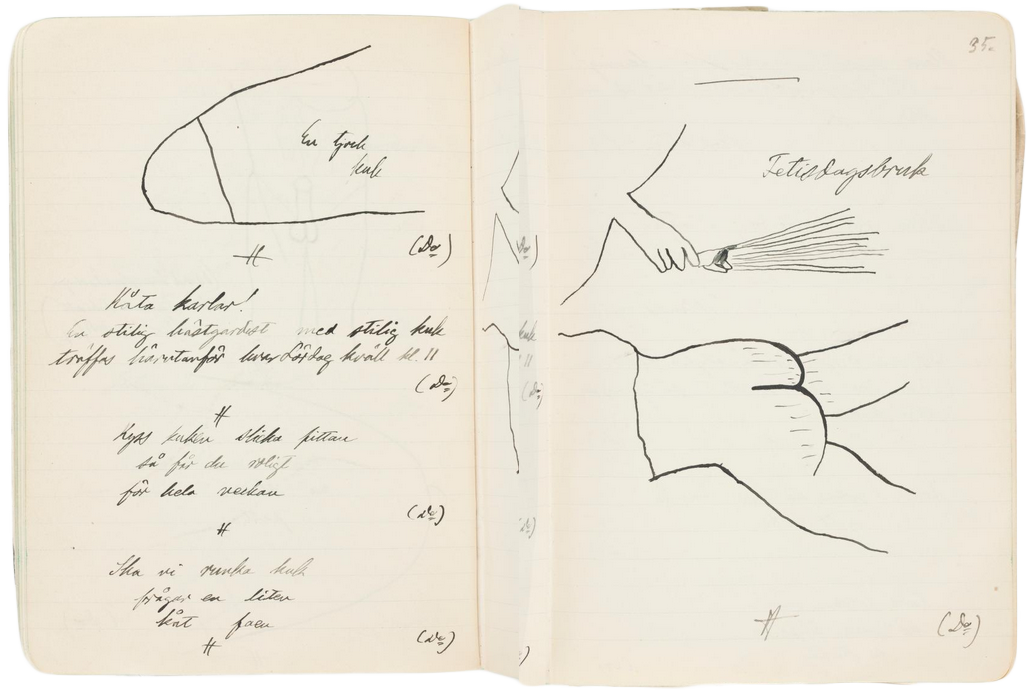 En tjock
kuk
(Do)
Kåta karlar!
En stilig hästgardist med stilig kuk
träffas härutanför hvar Lördag kväll kl. 11
(Do)
Kyss kuken slicka fittan
så får du roligt
för hela veckan
(Do)
Ska vi runka kuk
frågar en liten
kåt faen
(Do)
35.
Fetisdagsbruk
(Do)